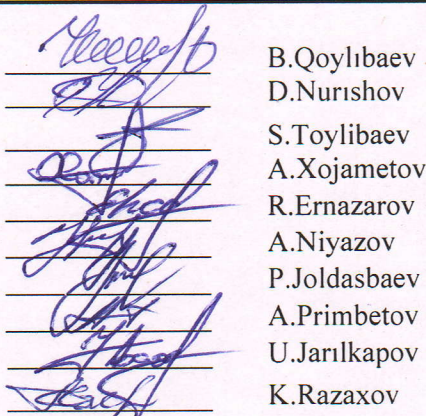 B.Qoylıbaev
D.Nurıshov
S.Toylibaev
A.Xojametov
R.Ernazarov
A.Niyazov
P.Joldasbaev
A.Primbetov
U.Jarılkapov
K.Razaxov